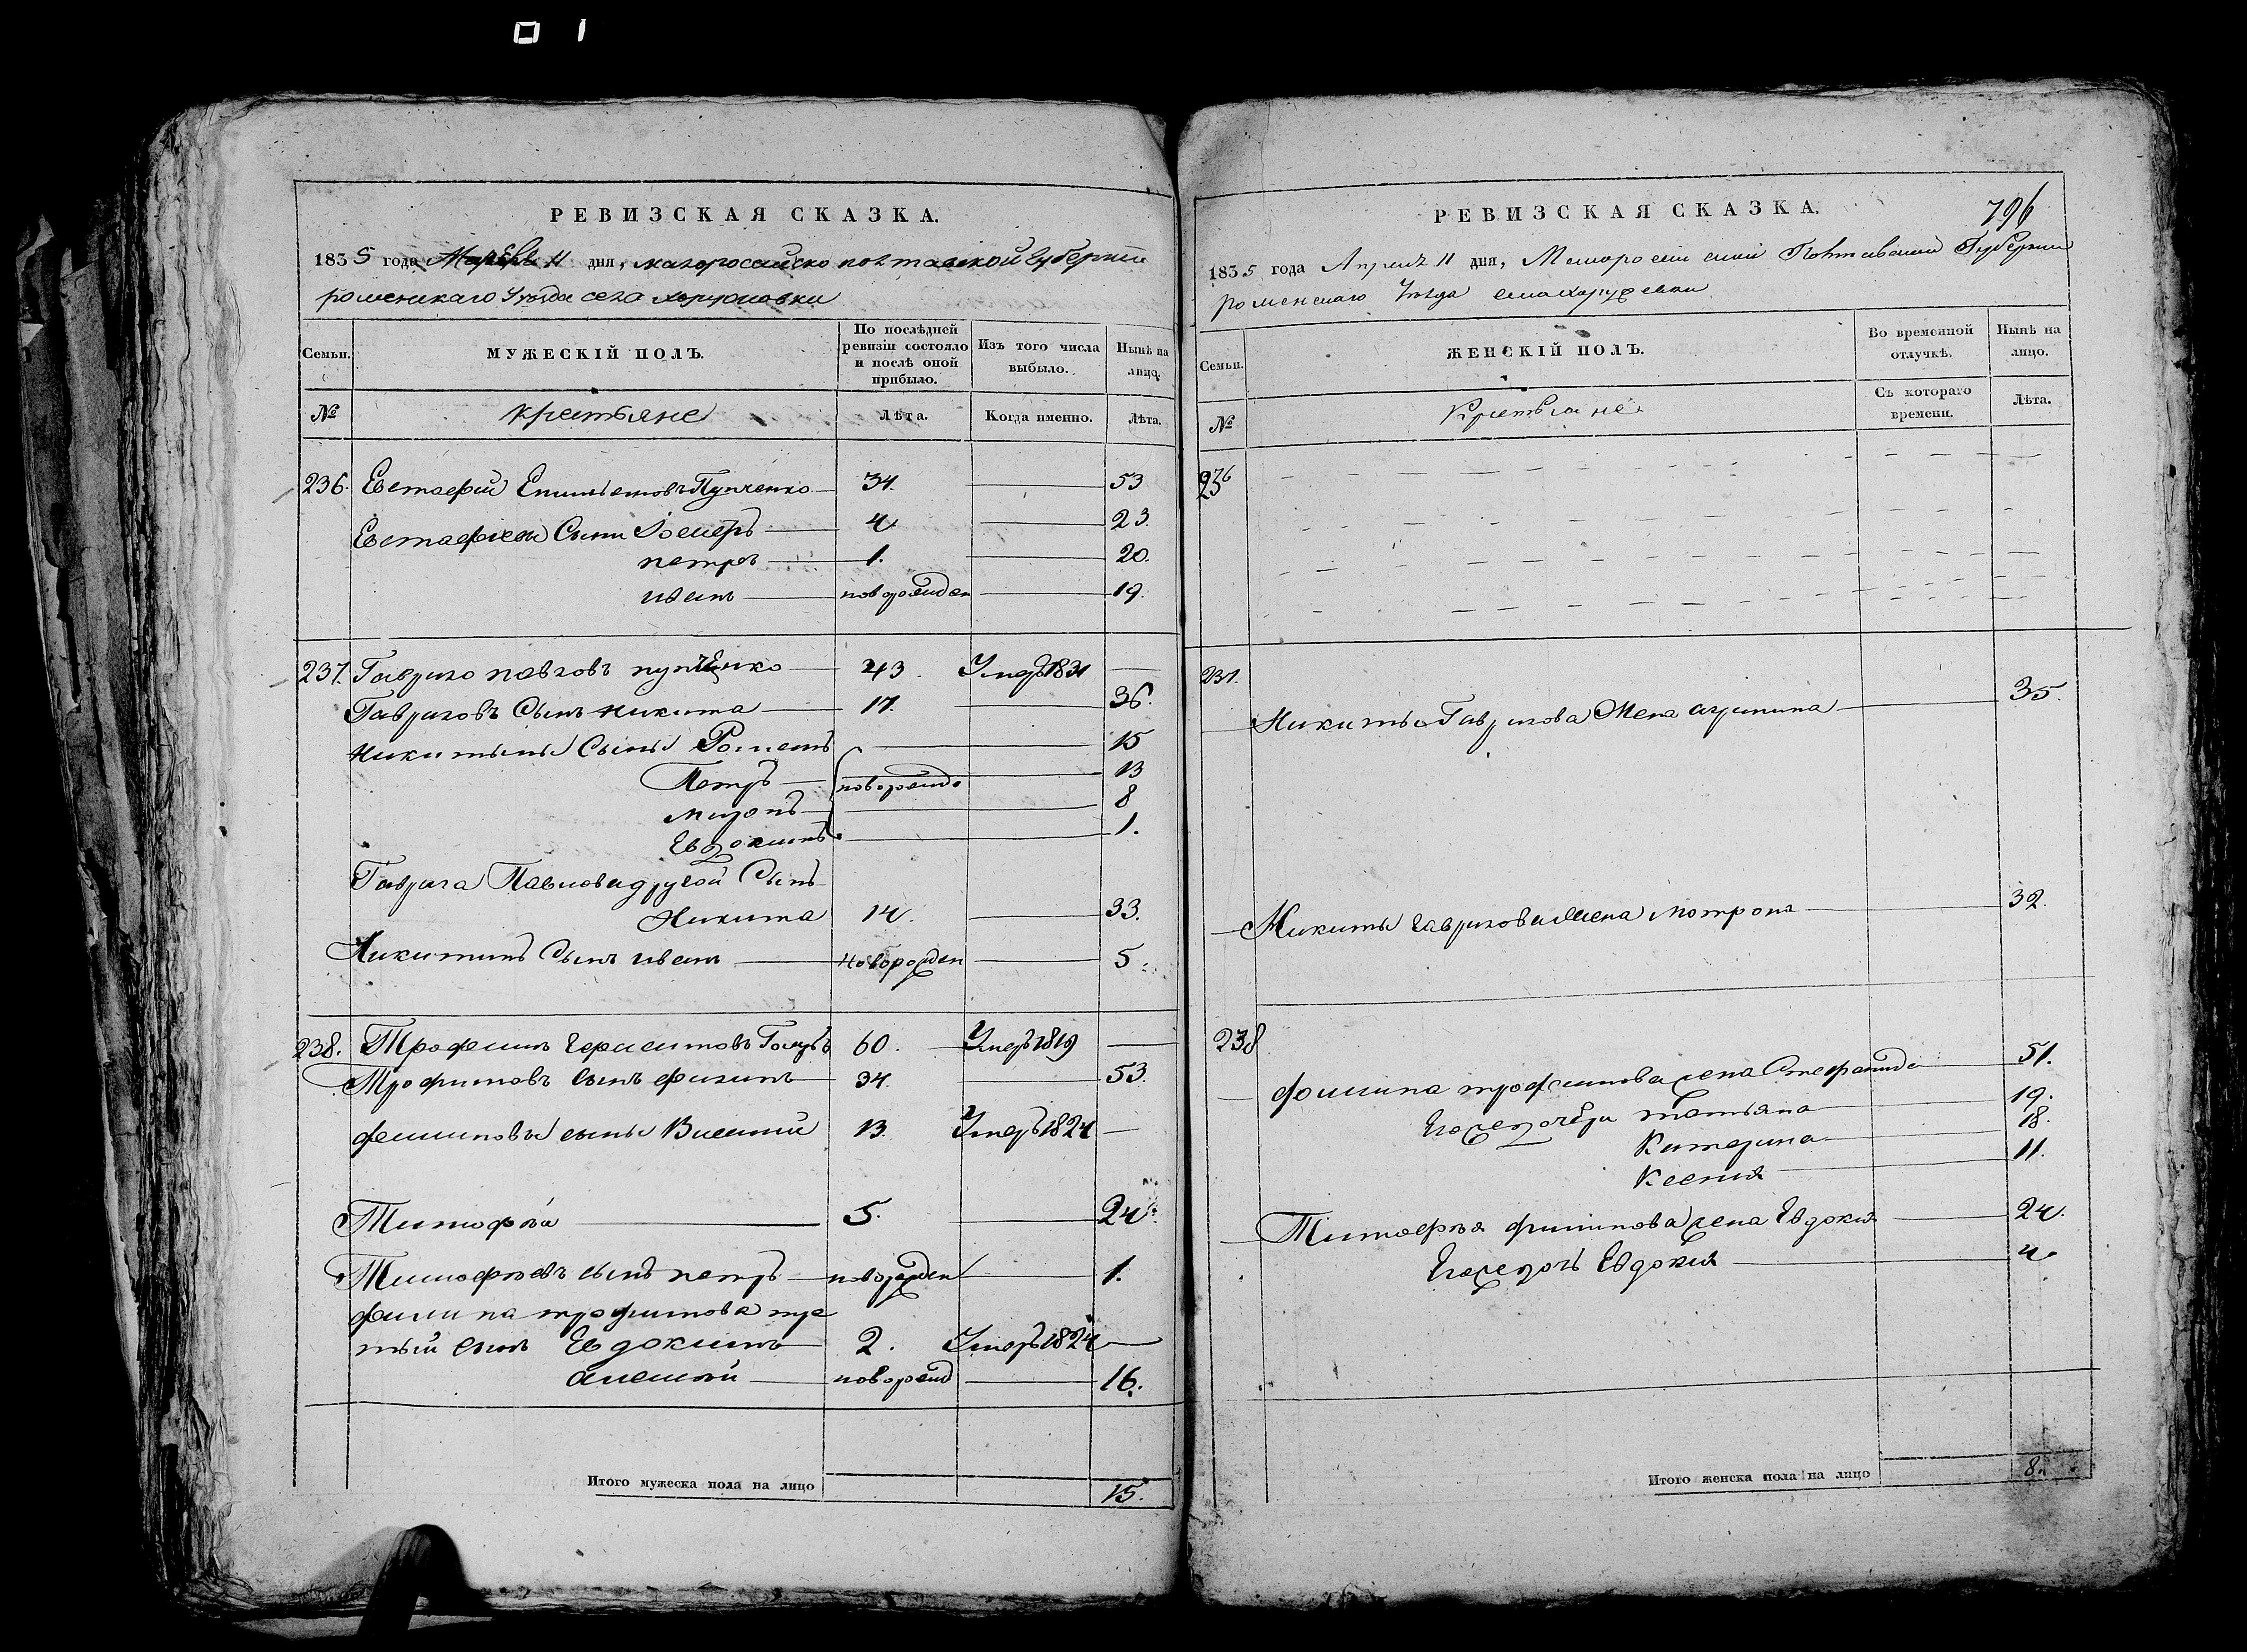 РЕВИЗСКАЯ СКАЗКА.
1835 года 11 дня, малоросийско полтавской губернии
роменскаго уезда села
Семьи.
МУЖЕСКІЙ ПОЛЪ.
По послѣдней ревизіи состояло и послѣ оной прибыло.
Изъ того числа выбыло.
Нынѣ на лицо.
№
крестьяне
Лѣта.
Когда именно.
Лѣта.
236. Евстафий Пупченко 34. 53
Евстафиевы Сыны 4 23.
петръ 1. 20.
иванъ новорожден 19.
237. Гаврило павловъ пупченко 43. Умеръ 1831
Гавриловъ Сынъ никита 17. 36.
никитины Сыны Романъ 15
Петръ новорожд 13
миронъ 8
Евдокимъ 1.
Гаврила Павлова другой Сынъ
Никита 14. 33.
Никитинъ Сынъ иванъ новорожден 5.
238. Трофимъ Герасимовъ Голубъ 60. Умеръ 1819
Трофимовъ сынъ филипъ 34. 53.
филиповы сыны Василий 13. Умеръ 1824
Тимофѣй 5. 24.
Тимофѣевъ сынъ петръ новорожден 1.
филипа трофимова тре
тий сынъ Евдокимъ 2. Умеръ 1824
алексѣй новорожд 16.
Итого мужеска пола на лицо 15.
РЕВИЗСКАЯ СКАЗКА.
796
1835 года Апреля 11 дня, Малоросийской Полтавской Губернии
роменскаго уезда села
Семьи.
ЖЕНСКІЙ ПОЛЪ.
Во временной отлучкѣ.
Нынѣ на лицо.
№
Крестьяне
Съ котораго времени.
Лѣта.
236
237.
Никиты Гаврилова Жена агрипина 35.
Никиты гаврилова жена мотрона 32.
238
филипа трофимова жена Стефанида 51.
Его дочери татьяна 19.
Катерина 18.
Ксения 11.
Тимофѣя филипова жена Евдокия 24.
Его дочь Евдокия 4
Итого женска пола на лицо 8.